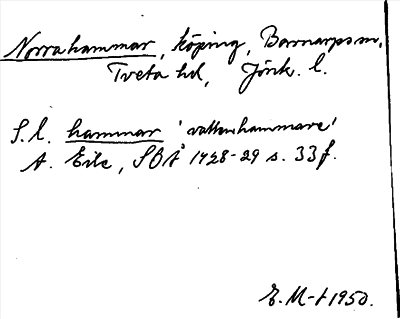 Norrahammar, köping, Barnarps sn,
Tveta hd, Jönk. l.
S. l. hammar 'vattenhammare'
A. Ejle, SOÅ 1928-29 s. 33 f.
E. M-t 1950.